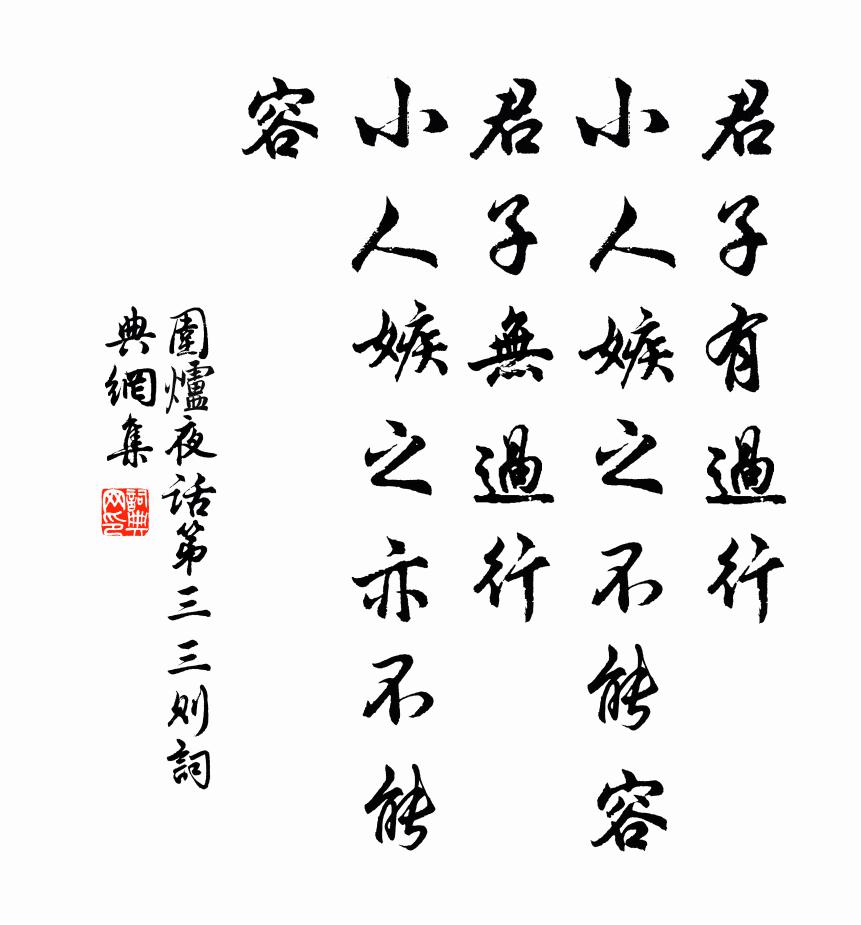 君子有過行
小人嫉之不能容
君子無過行
小人嫉之亦不能
容
圍爐夜話第三三則詞
典網集
詞典
网印